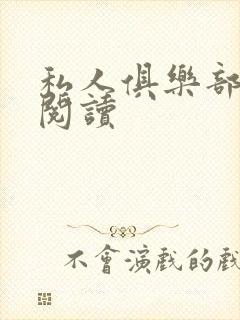 私人俱樂部
閱讀
不會演戲的戲